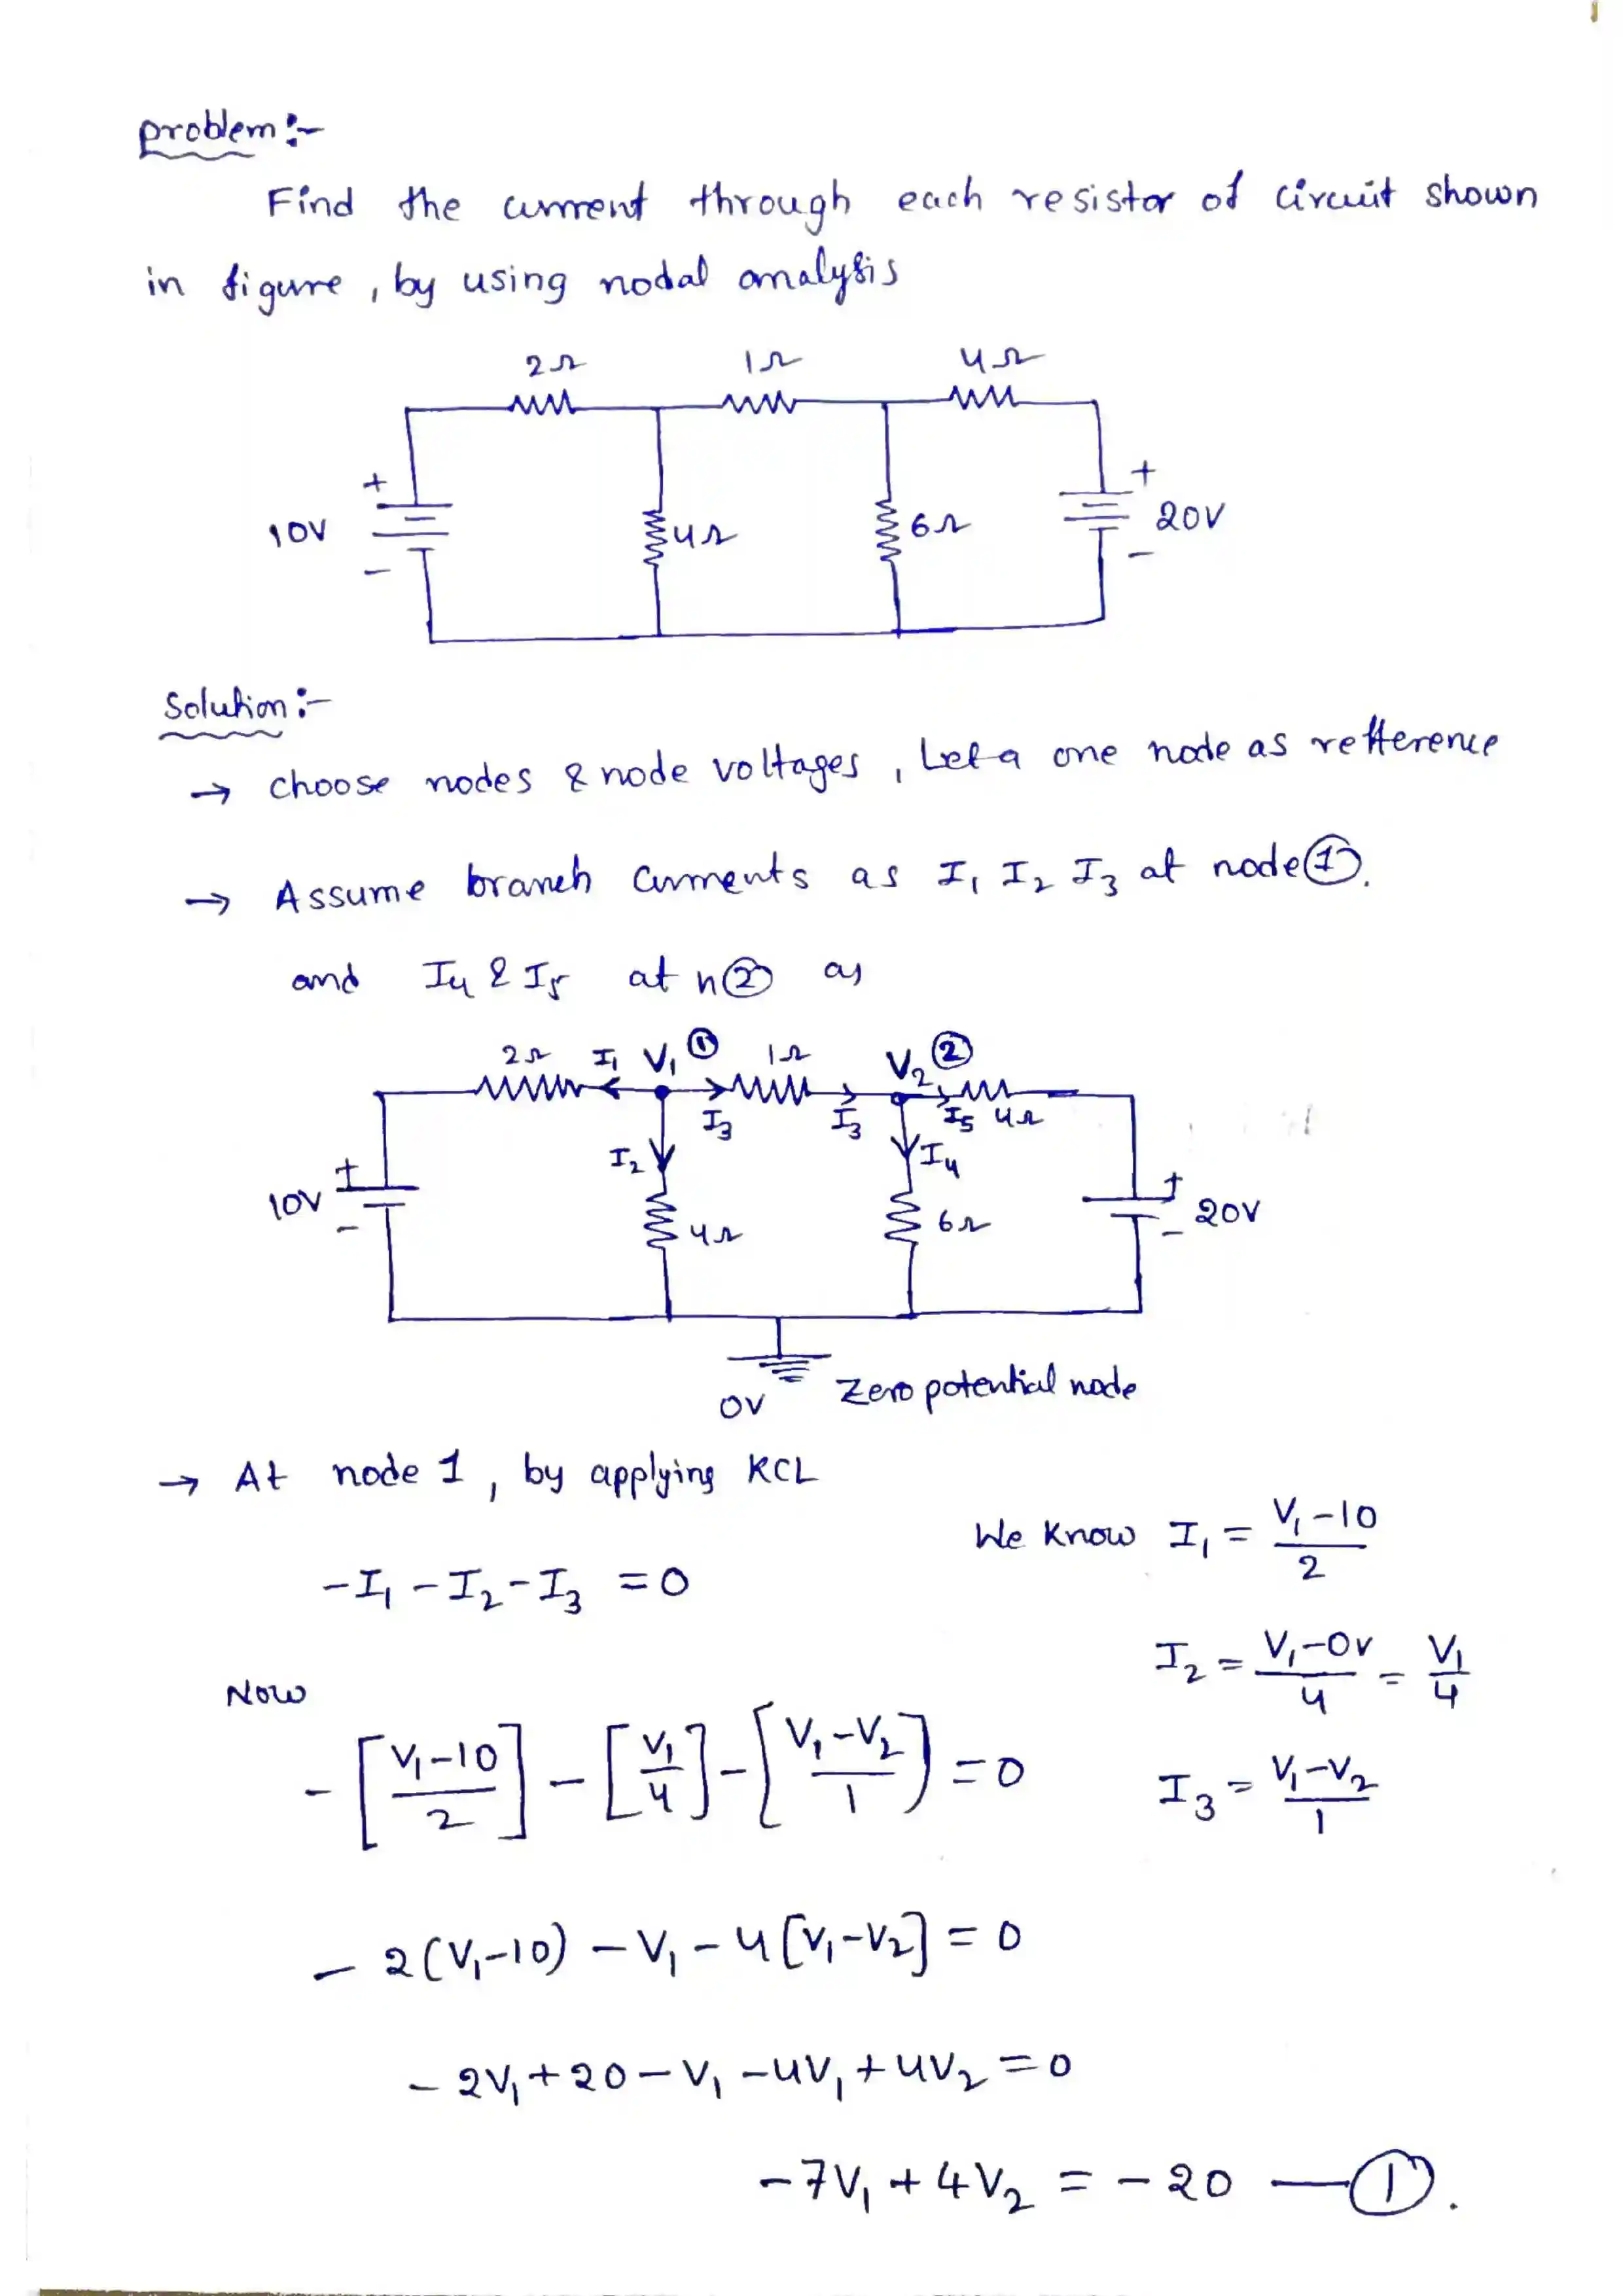 problem :-
Find the current through each resistor of circuit shown
in figure , by using nodal analysis
2Ω 1Ω 4Ω
+ +
10V 4Ω 6Ω 20V
- -
Solution :-
→ choose nodes & node voltages , Let a one node as refference
→ Assume branch currents as I₁ I₂ I₃ at node ①.
and I₄ & I₅ at n② as
2Ω I₁ V₁ ① 1Ω V₂ ②
I₃ I₃ I₅ 4Ω
I₂ I₄
+ +
10V 4Ω 6Ω 20V
- -
0V Zero potential node
→ At node 1 , by applying KCL
We Know I₁ = (V₁-10)/2
-I₁ - I₂ - I₃ = 0
I₂ = (V₁-0V)/4 = V₁/4
Now
-[(V₁-10)/2] - [V₁/4] - [(V₁-V₂)/1) = 0
I₃ = (V₁-V₂)/1
- 2(V₁-10) - V₁ - 4[V₁-V₂] = 0
- 2V₁ + 20 - V₁ - 4V₁ + 4V₂ = 0
-7V₁ + 4V₂ = - 20 — ①.